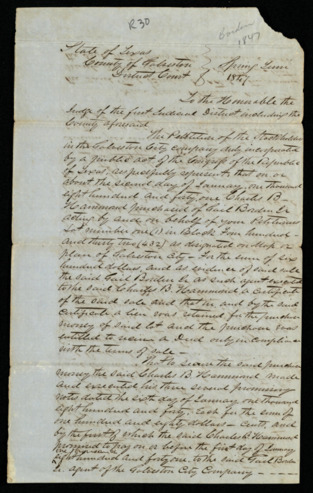 R30
Borden
1847
State of Texas
County of Galveston
District Court
Spring Term
1847
To the Honorable the
Judge of the first Judicial District including the
County aforesaid
The Petition of the Stockholders
in the Galveston City company duly incorporated
by a public act of the Congress of the Republic
of Texas, respectfully represents that on or
about the second day of January, one thousand
eight hundred and forty one Charles B.
Hammond purchased of Gail Borden Jr.
acting by and on behalf of your Petitioners
Lot number one (1) in Block Four hundred
and thirty two (432) as designated on Map or
plan of Galveston City - For the sum of six
hundred dollars, and as evidence of said sale
the said Gail Borden Jr. as such agent executed
to the said Charles B. Hammond a Certificate
of the said sale and that in and by the said
Certificate a lien was retained for the purchase
money of said lot and the purchaser was
entitled to a Deed only in compliance
with the terms of sale -
That to secure the said purchase
money the said Charles B. Hammond made
and executed his three several promissory
notes dated the sixth day of January one thousand
eight hundred and forty. Each for the sum of
one hundred and eighty dollars - cents, and
by the first of which the said Charles B. Hammond
promised to pay on or before the first day of January
eight hundred and forty one, to the said Gail Borden
Jr. agent of the Galveston City Company